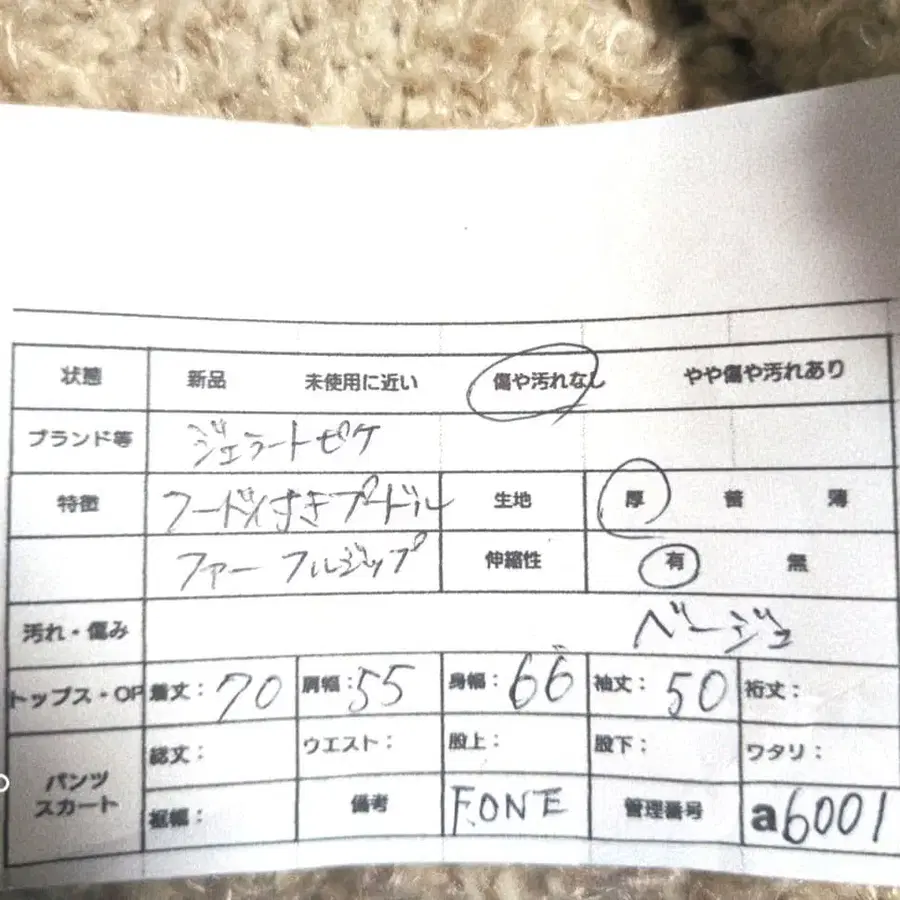 状態 新品 未使用に近い 傷や汚れなし やや傷や汚れあり
ブランド等 ジェラートピケ
特徴 フード付きプードル 生地 厚 普 薄
ファー フルジップ 伸縮性 有 無
汚れ・傷み ベージュ
トップス・OP 着丈: 70 肩幅: 55 身幅: 66 袖丈: 50 裄丈:
パンツ スカート 総丈: ウエスト: 股上: 股下: ワタリ:
裾幅: 備考 F.ONE 管理番号 a6001